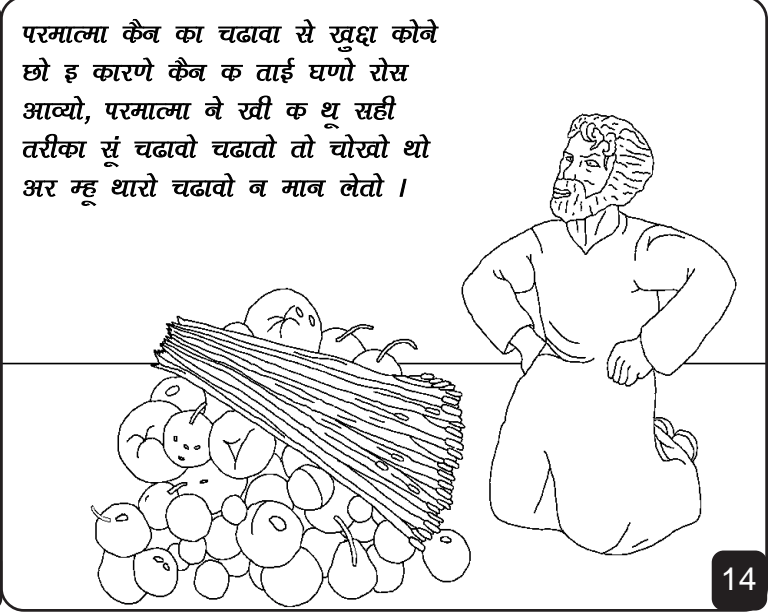 परमात्मा कैन का चढावा से खुद्दा कोने
छो इ कारणे कैन क ताई घणो रोस
आव्यो, परमात्मा ने खी क थू सही
तरीका सूं चढावो चढातो तो चोखो थो
अर म्हू थारो चढावो न मान लेतो ।
14